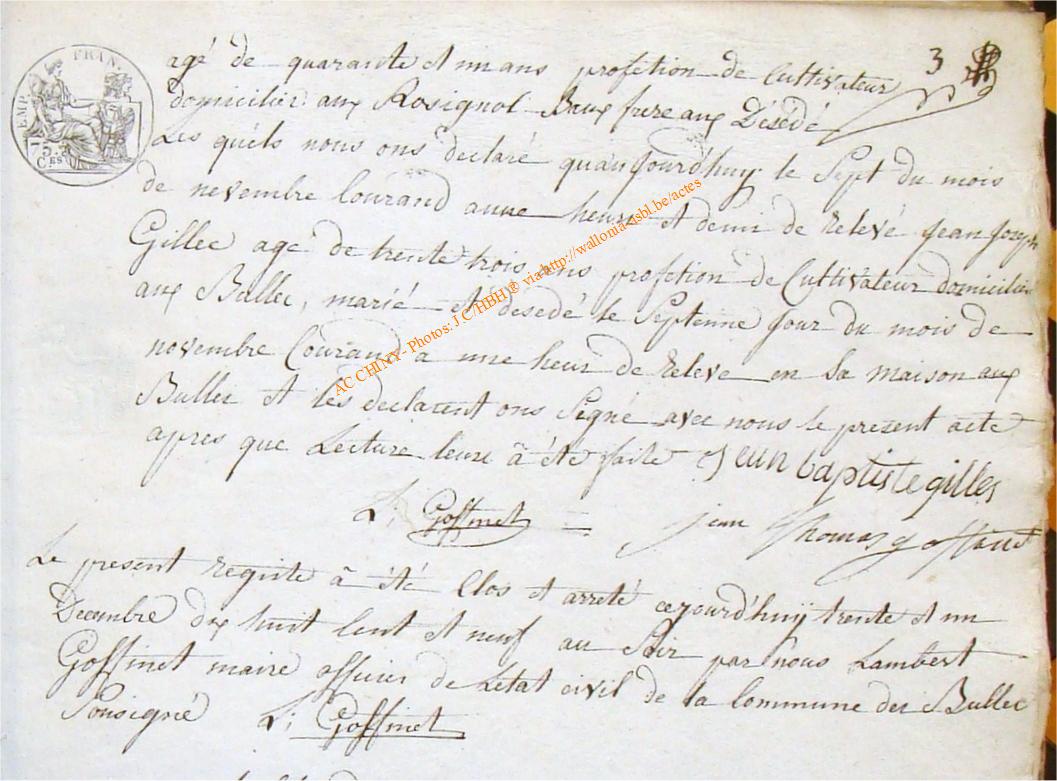 EMP. FRAN.
75
C.ES
3
agé de quarante et un ans profetion de Cultivateur
domicilier aux Rosignol Baux frere aux Désédé
Les quels nous ons declaré quaujourdhuy le Sept du mois
de nevembre Courand aune heure et demi de relevé jean joseph
Gillec age de trente trois ans profetion de Cultivateur domicilier
aux Bullec, marié et desedé le Septenne jour du mois de
novembre Courand a une heur de releve en sa maison aux
Bullec et les declarent ons Signé avec nous le present acte
apres que Lecture leur à été faite jean baptiste gilles
L; Goffinet = jean Thomas goffinet
Le present registe à été Clos et arreté cejourd'huÿ trente et un
Decembre dix huit Cent et neuf au Soir par nous Lambert
Goffinet maire officier de Létat civil de la Commune des Bullec
Sousigné L; Goffinet
AC CHINY - Photos: J.C/HBH ® via http://wallonia-asbl.be/actes